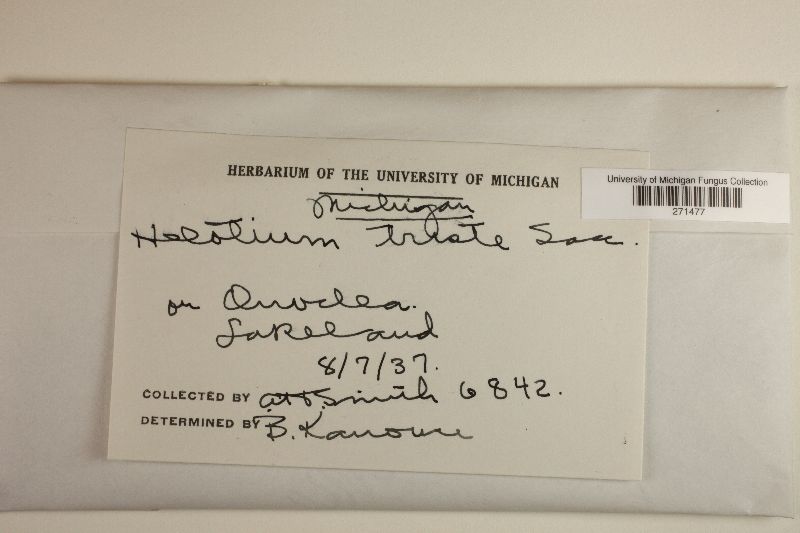 HERBARIUM OF THE UNIVERSITY OF MICHIGAN
University of Michigan Fungus Collection
271477
Michigan
Helotium triste Sacc.
on Onoclea.
Lakeland
8/7/37.
COLLECTED BY A. H. Smith 6842.
DETERMINED BY B. Kanouse